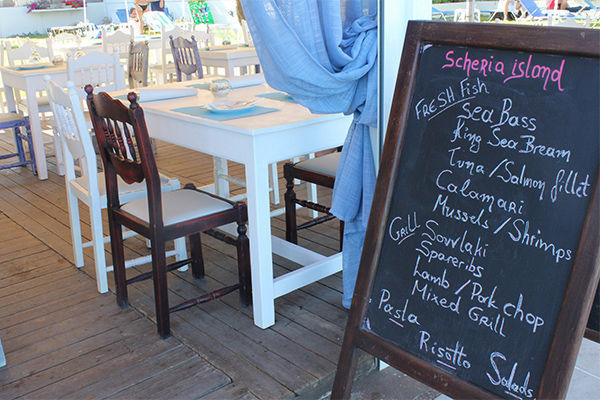 Scheria island
FRESH Fish
Sea Bass
King Sea Bream
Tuna / Salmon fillet
Calamari
Mussels / Shrimps
GRILL Sowlaki
Spareribs
Lamb / Pork chop
Mixed Grill
Pasta
Risotto
Salads